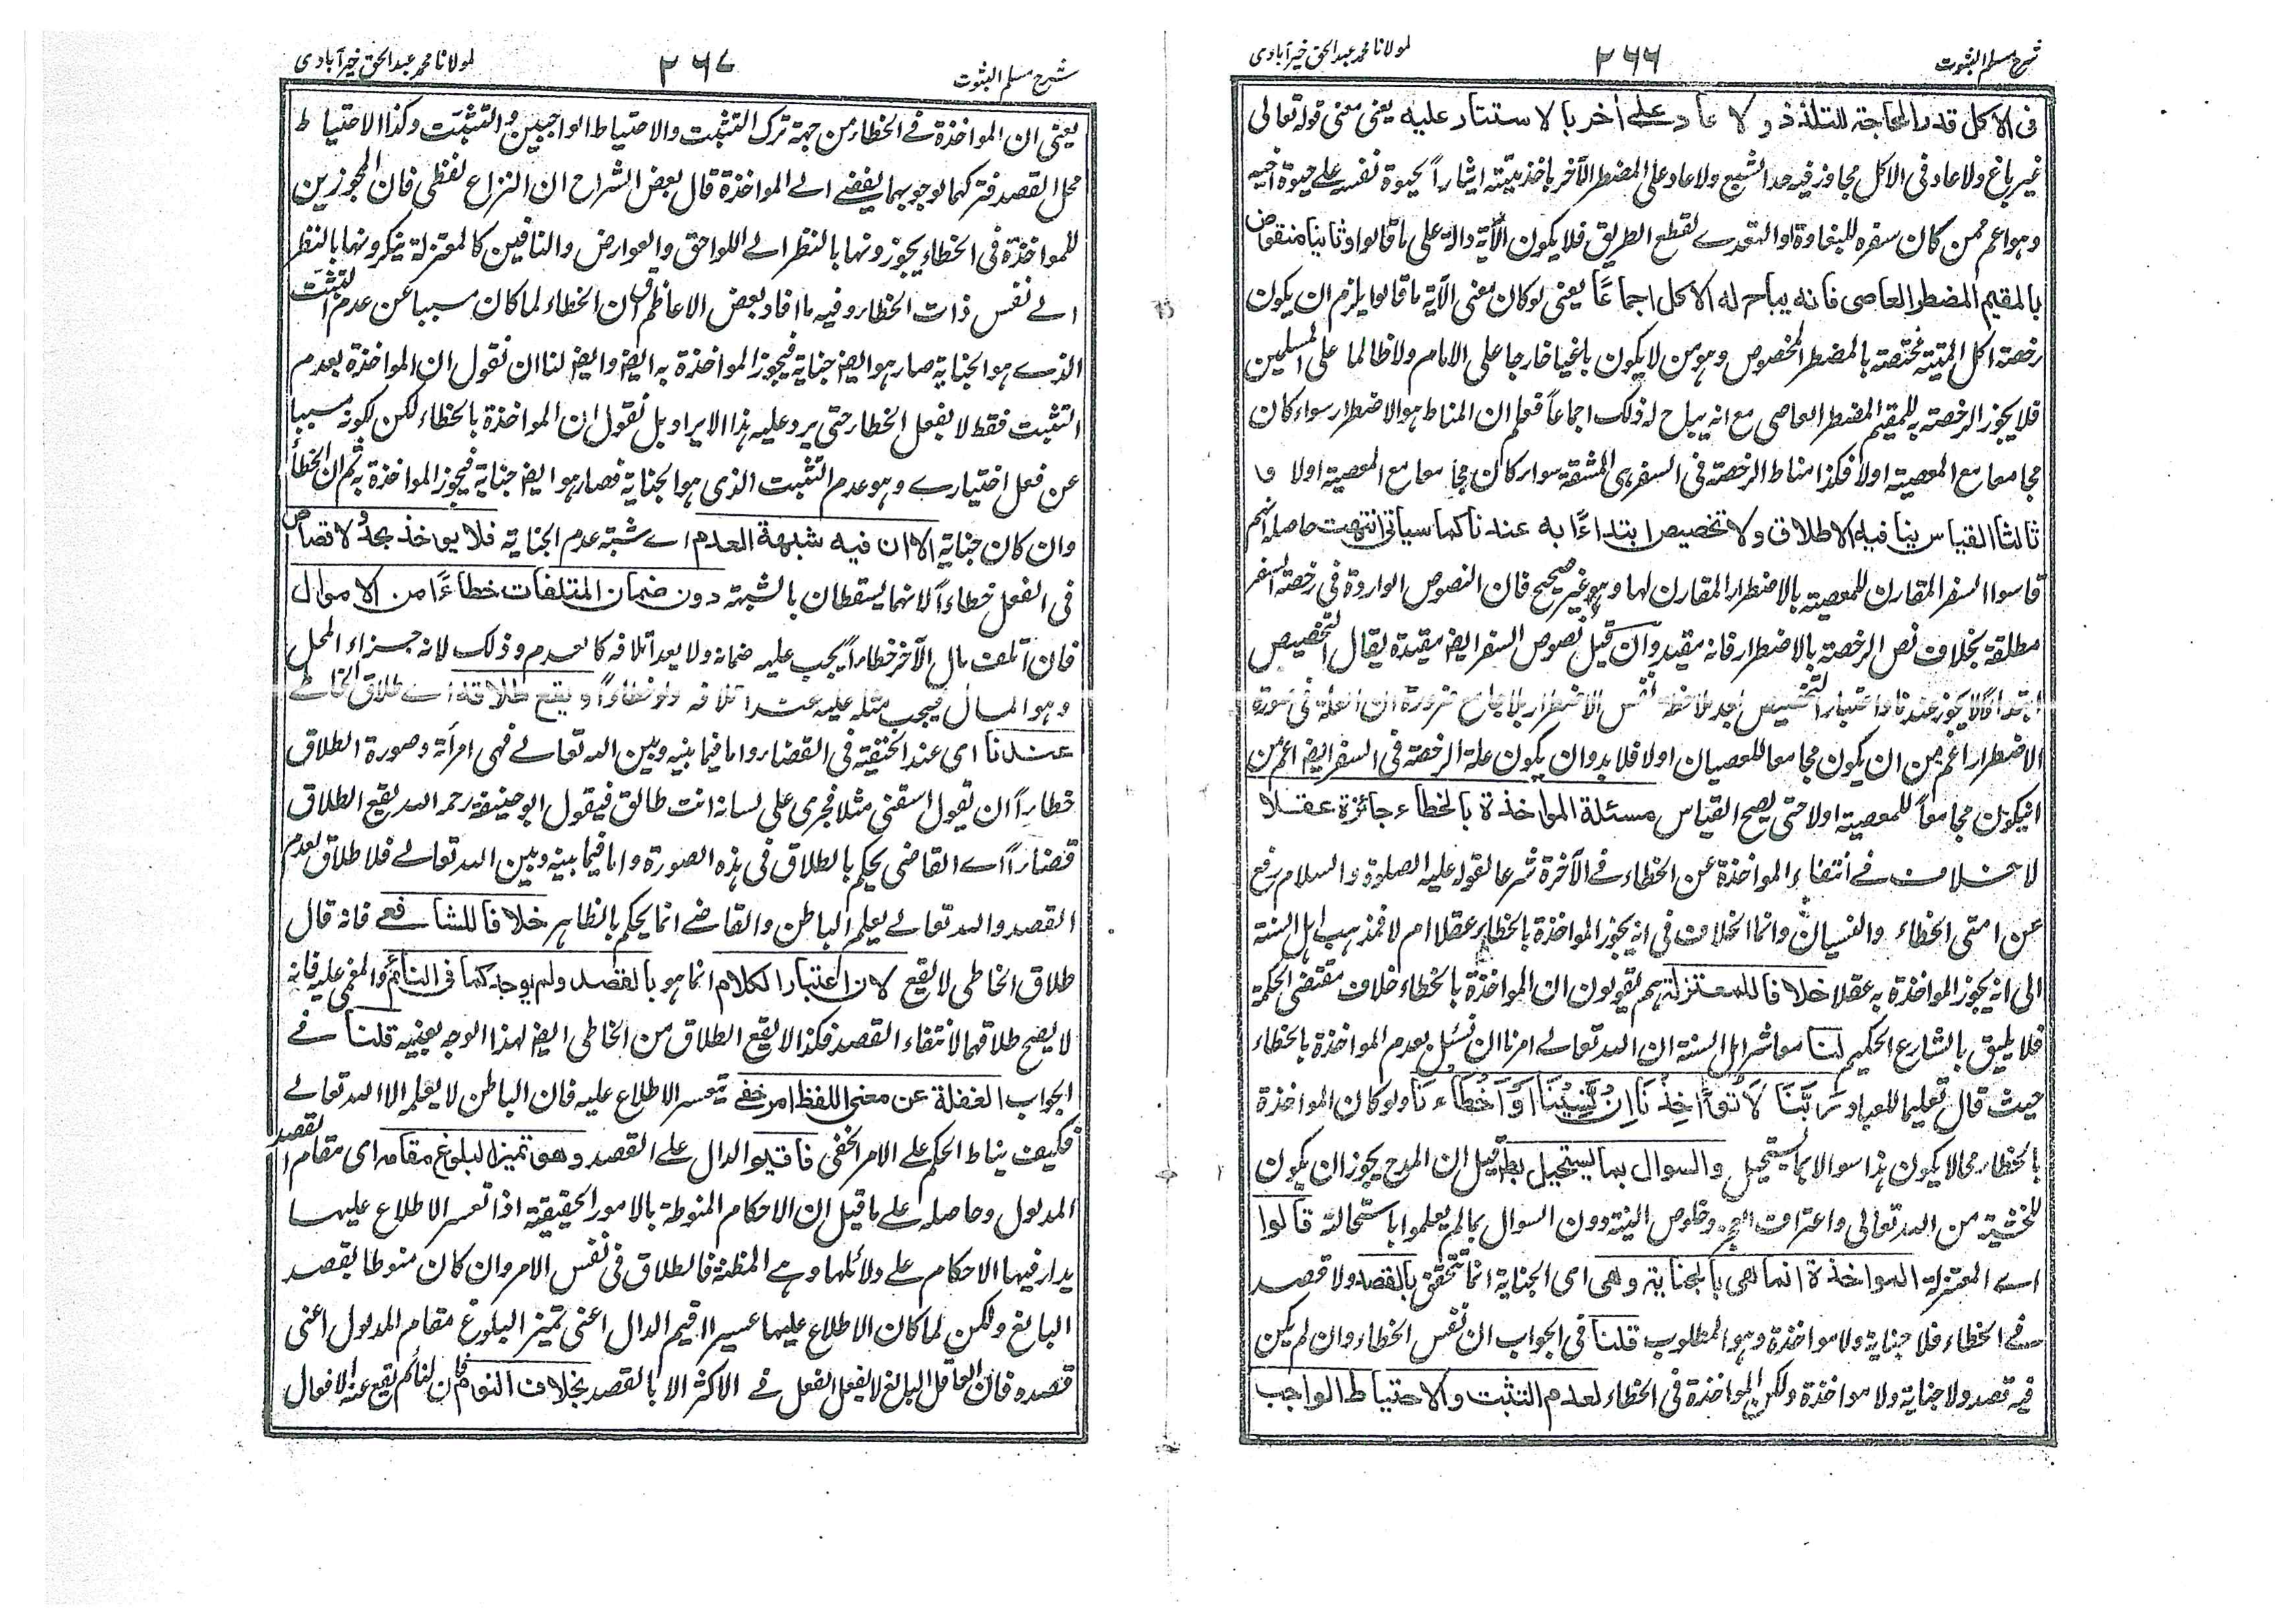 شرح مسلم الثبوت
٢٦٦
لمولانا محمد عبدالحق خیرآبادی
فی الاکل قدر الحاجة للتلذذ ولا عاد علے اٰخر بالاستتار علیه یعنی معنی قوله تعالی
غیر باغ ولا عاد فی الاکل مجاوز فیه حد الشبع ولا عاد علی المضطر الآخر باخذ میتته ایثاراً لحیوة نفسه علے حیوة اخیه
وهو اعم ممن کان سفره للبغاوة او التعدے لقطع الطریق فلا یکون الآیة دالة علی ما قالوا وثانیا منقوض
بالمقیم المضطر العاصی فانه یباح له الاکل اجماعاً یعنی لو کان معنی الآیة ما قالوا یلزم ان یکون
رخصة اکل المیتة مختصة بالمضطر المخصوص وهو من لا یکون باغیا خارجا علی الامام ولا ظالما علی المسلمین
فلا یجوز الرخصة به للمقیم المضطر العاصی مع انه یباح له ذلک اجماعاً فعلم ان المناط هو الاضطرار سواء کان
مجامعا مع المعصیة اولا فکذا مناط الرخصة فی السفر هی المشقة سواء کان مجامعا مع المعصیة اولا و
ثالثا القیاس ینافیه الاطلاق ولا تخصیص ابتداءً به عندنا کما سیاتی انتهت حاصله انهم
قاسوا السفر المقارن للمعصیة بالاضطرار المقارن لها وهو غیر صحیح فان النصوص الواردة فی رخصة السفر
مطلقة بخلاف نص الرخصة بالاضطرار فانه مقید وان قیل نصوص السفر ایضا مقیدة یقال التخصیص
ابتداءً لا یجوز عندنا واعتبار التخصیص بعد ملاحظة نفس الاضطرار بلا جامع ضرورة ان العلة فی صورة
الاضطرار اعم من ان یکون مجامعا للعصیان اولا فلا بد وان یکون علة الرخصة فی السفر ایضا اعم من
ان یکون مجامعاً للمعصیة اولا حتی یصح القیاس مسئلة المواخذة بالخطاء جائزة عقلا
لا خلاف فے انتفاء المواخذة عن الخطاء فے الآخرة شرعا لقوله علیه الصلوة والسلام رفع
عن امتی الخطاء والنسیان وانما الخلاف فی انه یجوز المواخذة بالخطاء عقلا ام لا فمذهب اهل السنة
الی انه یجوز المواخذة به عقلا خلافا للمعتزلة هم یقولون ان المواخذة بالخطاء خلاف مقتضی الحکمة
فلا یلیق بالشارع الحکیم لنا معاشر اهل السنة ان الله تعالے امرنا ان نسئل بعدم المواخذة بالخطاء
حیث قال تعلیما للعباد رَبَّنَا لَا تُؤَاخِذْنَا اِنْ نَّسِیْنَا اَوْ اَخْطَاْنَا ولو کان المواخذة
بالخطاء محالا یکون هذا سوالا بما یستحیل والسوال بما یستحیل باطل قیل ان المدح یجوز ان یکون
للخشیة من الله تعالی واعتراف العجز وخلوص النیة دون السوال بما لم یعلموا باستحالته قالوا
اے المعتزلة المواخذة انما هی بالجنایة وهی ای الجنایة انما تتحقق بالقصد ولا قصد
فے الخطاء فلا جنایة ولا مواخذة وهو المطلوب قلنا فی الجواب ان نفس الخطاء وان لم یکن
فیه قصد ولا جنایة ولا مواخذة ولکن المواخذة فی الخطاء لعدم التثبت والاحتیاط الواجب
شرح مسلم الثبوت
٢٦٧
لمولانا محمد عبدالحق خیرآبادی
یعنی ان المواخذة فے الخطاء من جهة ترک التثبت والاحتیاط الواجبین والتثبت وکذا الاحتیاط
محل القصد فترکهما لوجوبهما یفضے الے المواخذة قال بعض الشراح ان النزاع لفظی فان المجوزین
للمواخذة فی الخطاء یجوزونها بالنظر الے اللواحق والعوارض والنافین کالمعتزلة ینکرونها بالنظر
الے نفس ذات الخطاء وفیه ما افاد بعض الاعاظم ان الخطاء لما کان مسببا عن عدم التثبت
الذے هو الجنایة صار هو ایضا جنایة فیجوز المواخذة به ایضا وایضا لنا ان نقول ان المواخذة بعدم
التثبت فقط لا بفعل الخطاء حتی یرد علیه هذا الایراد بل نقول ان المواخذة بالخطاء لکن لکونه مسببا
عن فعل اختیارے وهو عدم التثبت الذی هو الجنایة فصار هو ایضا جنایة فیجوز المواخذة به ثم ان الخطأ
وان کان جنایة الا ان فیه شبهة العدم اے شبهة عدم الجنایة فلا یواخذ بحد ولا قصاص
فی الفعل خطاءً لانهما یسقطان بالشبهة دون ضمان المتلفات خطاءً من الاموال
فان اتلف مال الآخر خطاءً یجب علیه ضمانه ولا یعد اتلافه کالعدم وذلک لانه جزاء المحل
وهو المال فیجب مثله علیه عند اتلافه ولو خطاءً ویقع طلاقه اے طلاق الخاطے
عندنا ای عند الحنفیة فی القضاء واما فیما بینه وبین الله تعالے فهی امرأته وصورة الطلاق
خطاءً ان یقول اسقنی مثلا فجری علی لسانه انت طالق فیقول ابو حنیفة رحمه الله یقع الطلاق
قضاءً اے القاضی یحکم بالطلاق فی هذه الصورة واما فیما بینه وبین الله تعالے فلا طلاق لعدم
القصد والله تعالے یعلم الباطن والقاضے انما یحکم بالظاهر خلافا للشافعے فانه قال
طلاق الخاطی لا یقع لان اعتبار الکلام انما هو بالقصد ولم یوجد کما فی النائم والمغمی علیه فانه
لا یصح طلاقهما لانتفاء القصد فکذا لا یقع الطلاق من الخاطی ایضا لهذا الوجه بعینه قلنا فے
الجواب الغفلة عن معنی اللفظ امر خفے تیعسر الاطلاع علیه فان الباطن لا یعلم الا الله تعالے
فکیف یناط الحکم علے الامر الخفی فاقیم الدال علے القصد وهو تمیز البلوغ مقامه ای مقام القصد
المدلول وحاصله علے ما قیل ان الاحکام المنوطة بالامور الحقیقیة اذا تعسر الاطلاع علیها
یدار فیها الاحکام علے دلائلها وهے المظنة فالطلاق فی نفس الامر وان کان منوطا بقصد
البالغ ولکن لما کان الاطلاع علیها عسیرا اقیم الدال اعنی تمیز البلوغ مقام المدلول اعنی
قصده فان العاقل البالغ لا یفعل الفعل فے الاکثر الا بالقصد بخلاف النوم فان النائم یقع عنه الافعال